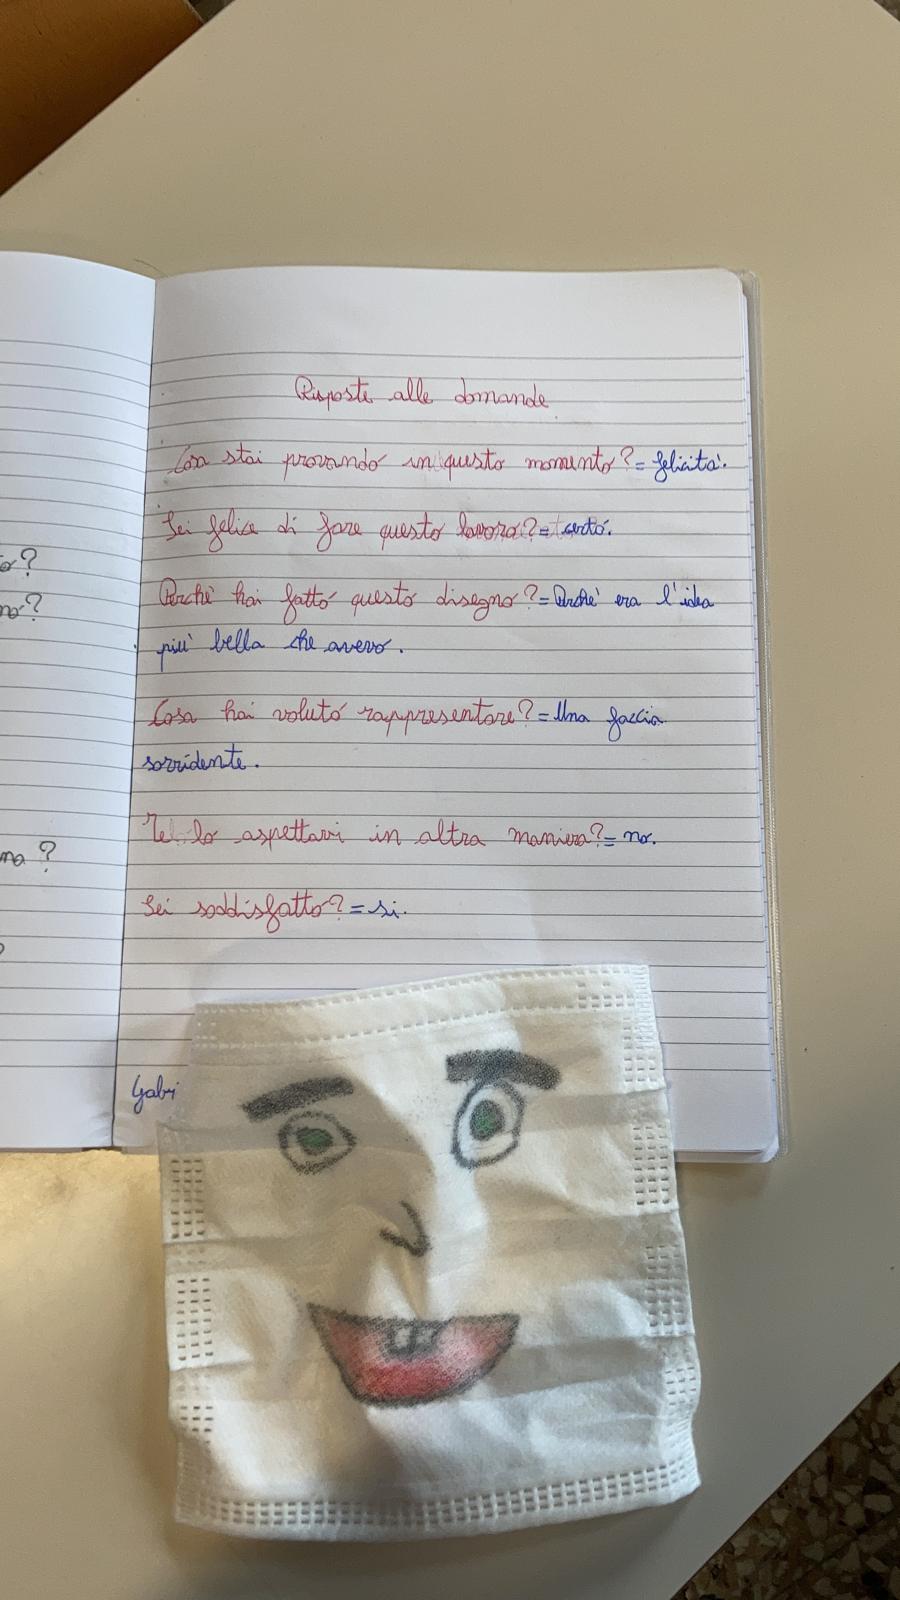 Risposte alle domande
Cosa stai provando in questo momento? = felicità.
Sei felice di fare questo lavoro? = certo.
Perchè hai fatto questo disegno? = Perchè era l'idea
più bella che avevo.
Cosa hai voluto rappresentare? = Una faccia
sorridente.
Te lo aspettavi in altra maniera? = no.
Sei soddisfatto? = si.
Gabri
?
?
ma ?